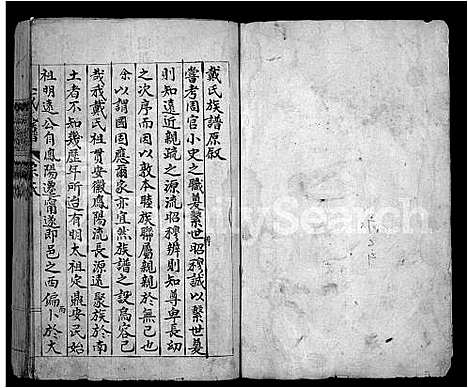 戴氏族譜原叙
嘗考周官小史之職奠繫世昭穆誠以繫世奠
則知遠近親疎之源流昭穆辨則知尊卑長幼
之次序而因以敦本睦族聯屬親親於無已也
余以謂國固應爾家亦宜然族譜之設烏容已
哉戒戴氏祖貫安徽鳳陽流長源遠聚族於南
土者不知幾歷年所迨有明太祖定鼎安民始
祖明遠公自鳳陽遷甯遂即邑之西偏卜於大
FamilySearch